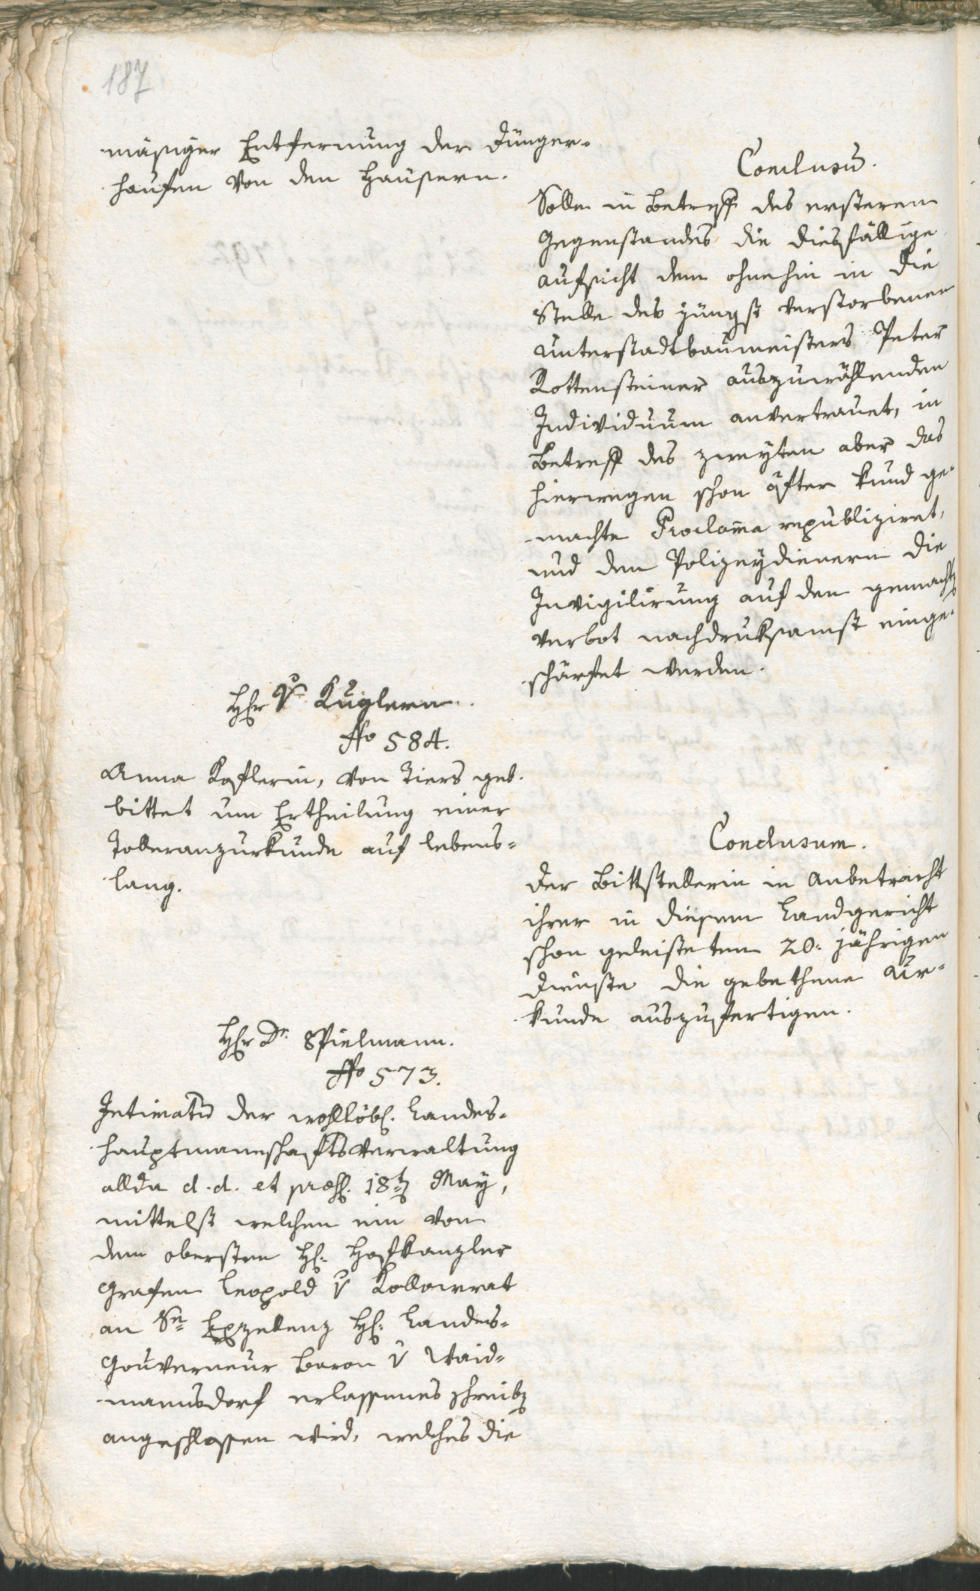 187
mäsiger Entfernung der Dünger-
haufen von den Häusern.
Conclusū.
Solle in Betreff des ersteren
Gegenstandes die diesfällige
Aufsicht dem ohnehin in die
Stelle des jüngst verstorbenen
Unterstadtbaumeisters Peter
Rottensteiner auszuwählenden
Individuum anvertrauet, in
Betreff des zweyten aber das
hierwegen schon öfter kund ge-
machte Proclama republiziret,
und den Polizeydienern die
Invigilirung auf den gemachtē
Verbot nachdruksamst einge-
schärfet werden.
H̄r v. Kuglern.
No 584.
Anna Koflerin, von Tiers geb.
bittet um Ertheilung einer
Tolleranzurkunde auf lebens-
lang.
Conclusum.
Der Bittstellerin in Anbetracht
ihrer in diesem Landgericht
schon geleisteten 20. jährigen
Dienste die gebethene Ur-
kunde auszufertigen.
H̄r Dr. Spielmann.
No 573.
Intimatū der wohllöbl. Landes-
hauptmannschaftsverwaltung
allda d. d. et præs. 18ten May,
mittelst welchen ein von
dem obersten H. Hofkanzler
Grafen Leopold v Kollowrat
an Sr Exzellenz H. Landes-
Gouverneur Baron v Waid-
mannsdorf erlassenes Schreibē
angeschlossen wird, welches die